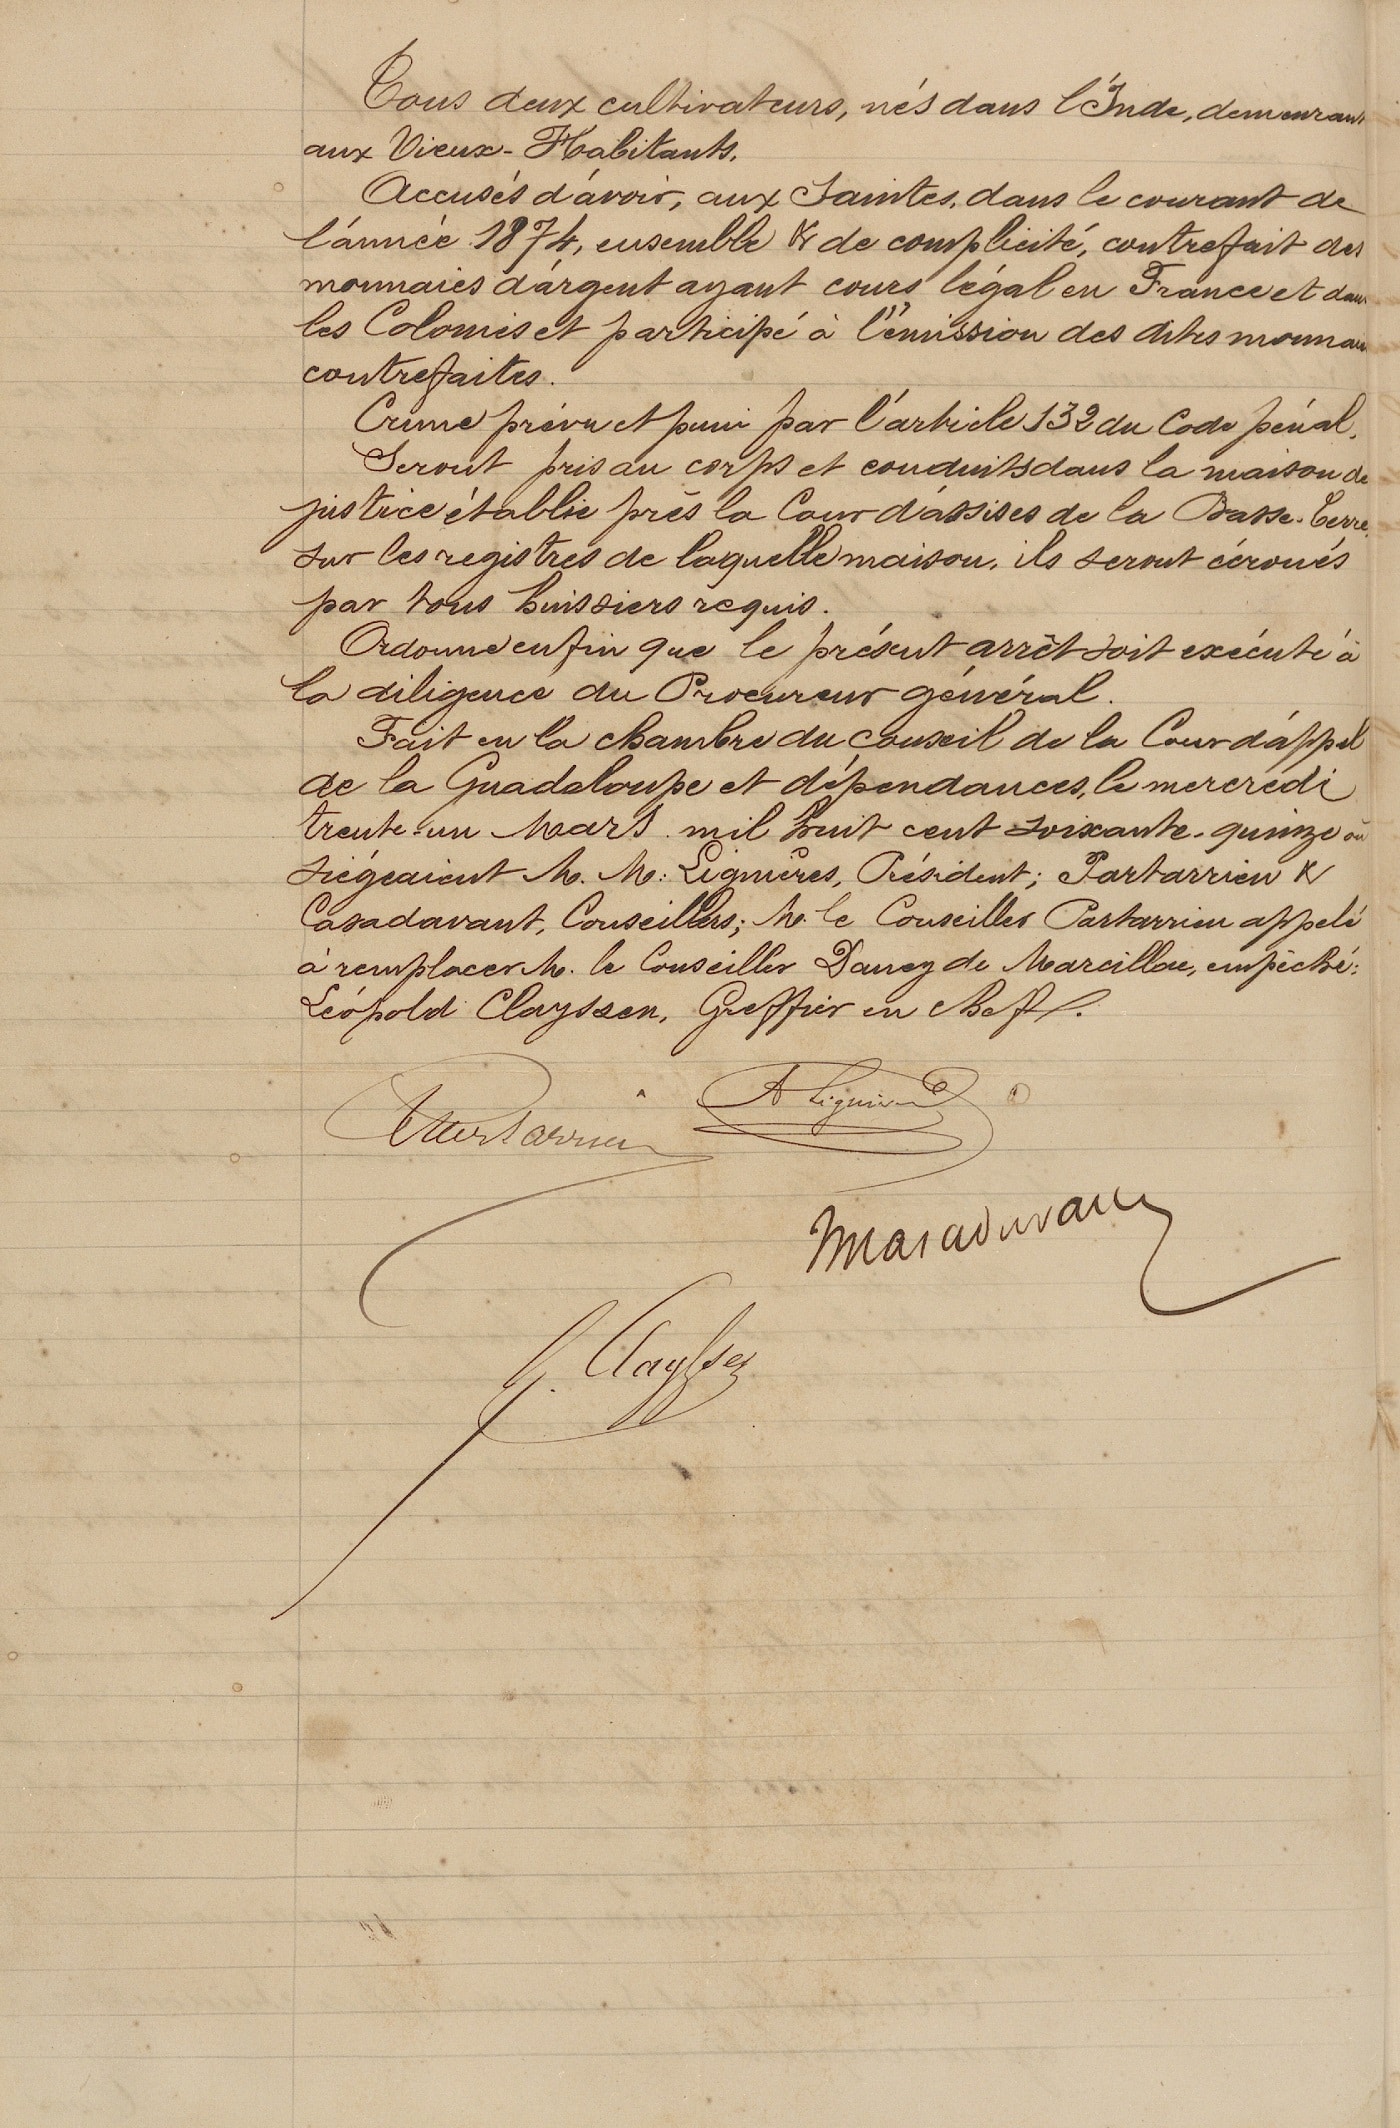 Tous deux cultivateurs, nés dans l'Inde, demeurant
aux Vieux-Habitants.
Accusés d'avoir, aux Saintes, dans le courant de
l'année 1874, ensemble & de complicité, contrefait des
monnaies d'argent ayant cours légal en France et dans
les Colonies et participé à l'émission des dites monnaies
contrefaites.
Crime prévu et puni par l'article 132 du Code pénal.
Seront pris au corps et conduits dans la maison de
justice établie près la Cour d'assises de la Basse-Terre,
sur les registres de laquelle maison, ils seront écroués
par tous huissiers requis.
Ordonne enfin que le présent arrêt soit exécuté à
la diligence du Procureur général.
Fait en la chambre du conseil de la Cour d'appel
de la Guadeloupe et dépendances, le mercredi
trente-un Mars mil huit cent soixante-quinze où
siégeaient M. M: Lignières, Président; Partarrieu &
Casadavant, Conseillers; M. le Conseiller Partarrieu appelé
à remplacer M. le Conseiller Daney de Marcillac, empêché:
Léopold Clayssen, Greffier en chef.
Partarrieu A Lignières
L. Clayssen